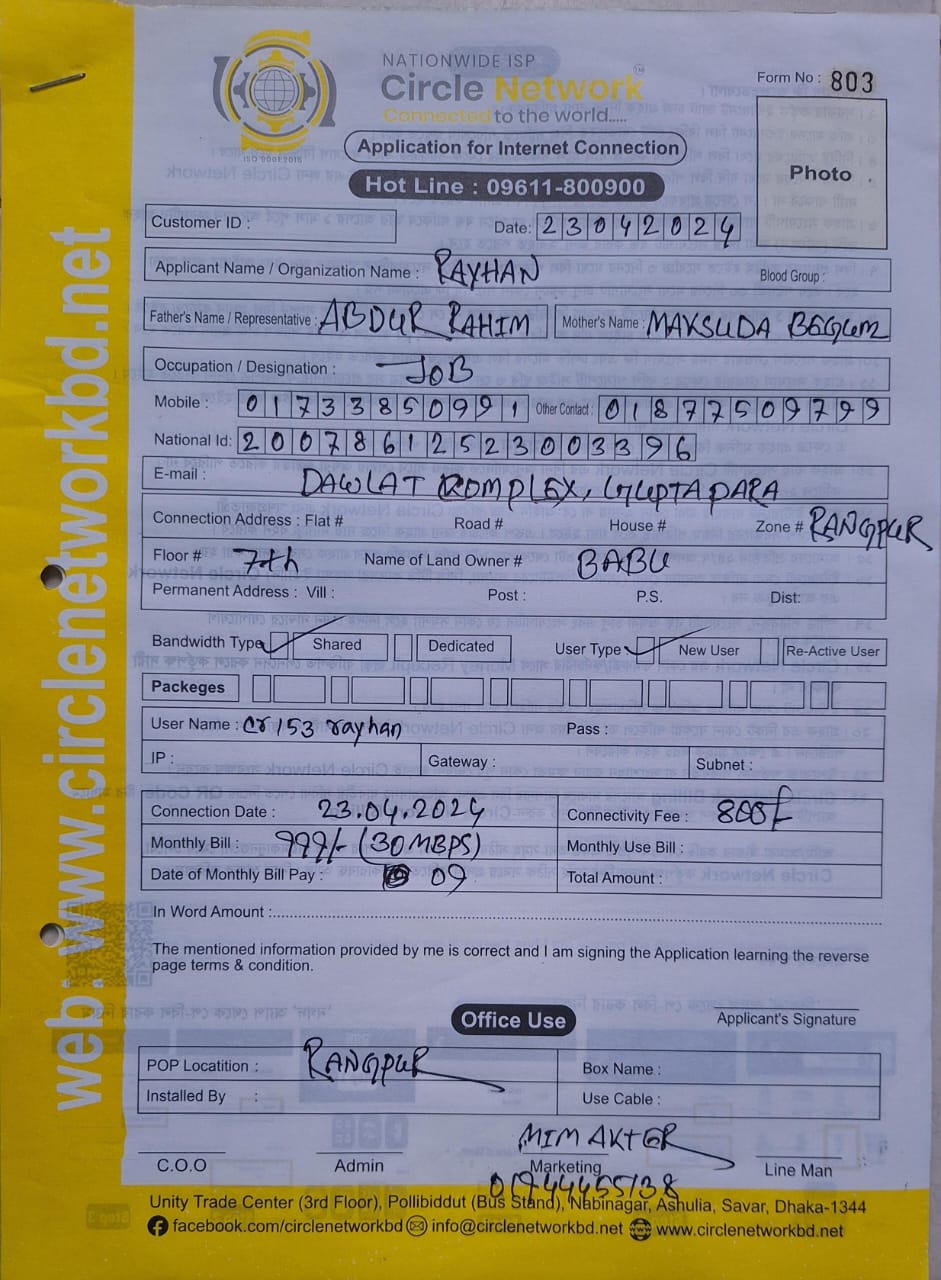 NATIONWIDE ISP
Circle Network™
Connected to the world.....
ISO 9001:2015
Form No : 803
Application for Internet Connection
Photo
Hot Line : 09611-800900
Customer ID :
Date: 23042024
Applicant Name / Organization Name : RAYHAN Blood Group :
Father's Name / Representative : ABDUR RAHIM Mother's Name : MAKSUDA BEGUM
Occupation / Designation : JOB
Mobile : 01733850991 Other Contact : 01877509799
National Id: 20078612523003396
E-mail : DAWLAT COMPLEX, GUPTAPARA
Connection Address : Flat # Road # House # Zone # RANGPUR
Floor # 7th Name of Land Owner # BABU
Permanent Address : Vill : Post : P.S. Dist:
Bandwidth Type Shared Dedicated User Type New User Re-Active User
Packeges
User Name : cr153 rayhan Pass :
IP : Gateway : Subnet :
Connection Date : 23.04.2024 Connectivity Fee : 800/
Monthly Bill : 999/- (30MBPS) Monthly Use Bill :
Date of Monthly Bill Pay : 09 Total Amount :
In Word Amount :
The mentioned information provided by me is correct and I am signing the Application learning the reverse
page terms & condition.
Applicant's Signature
Office Use
POP Locatition : RANGPUR Box Name :
Installed By : Use Cable :
MIM AKTER
C.O.O Admin Marketing Line Man
01944455138
Unity Trade Center (3rd Floor), Pollibiddut (Bus Stand), Nabinagar, Ashulia, Savar, Dhaka-1344
facebook.com/circlenetworkbd info@circlenetworkbd.net www.circlenetworkbd.net
web : www.circlenetworkbd.net